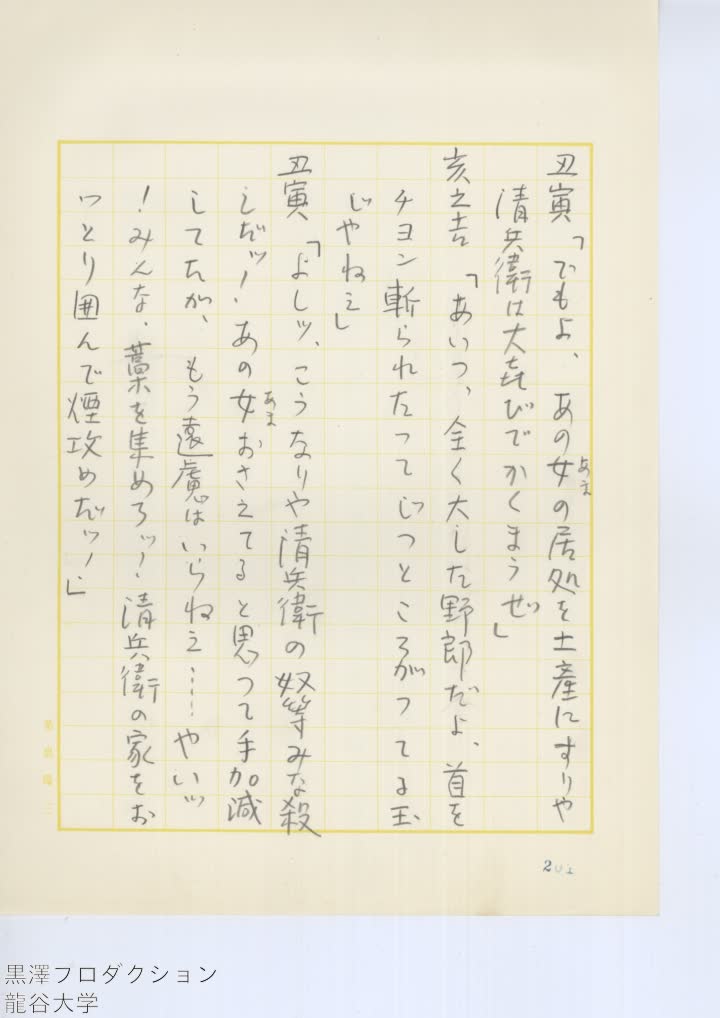 丑寅「でもよ、あの女の居処を土産にすりや
あま
清兵衛は大㐂びでかくまうぜ」
亥之吉「あいつ、全く大した野郎だよ、首を
チヨン斬られたつてじつところがつてる玉
じやねえ」
丑寅「よしッ、こうなりや清兵衛の奴等みな殺
しだッ！あの女おさえてると思つて手加減
あま
してたが、もう遠慮はいらねえ……やいッ
！みんな、藁を集めろッ！清兵衛の家をお
つとり囲んで煙攻めだッ！」
黒澤フロダクション
龍谷大学